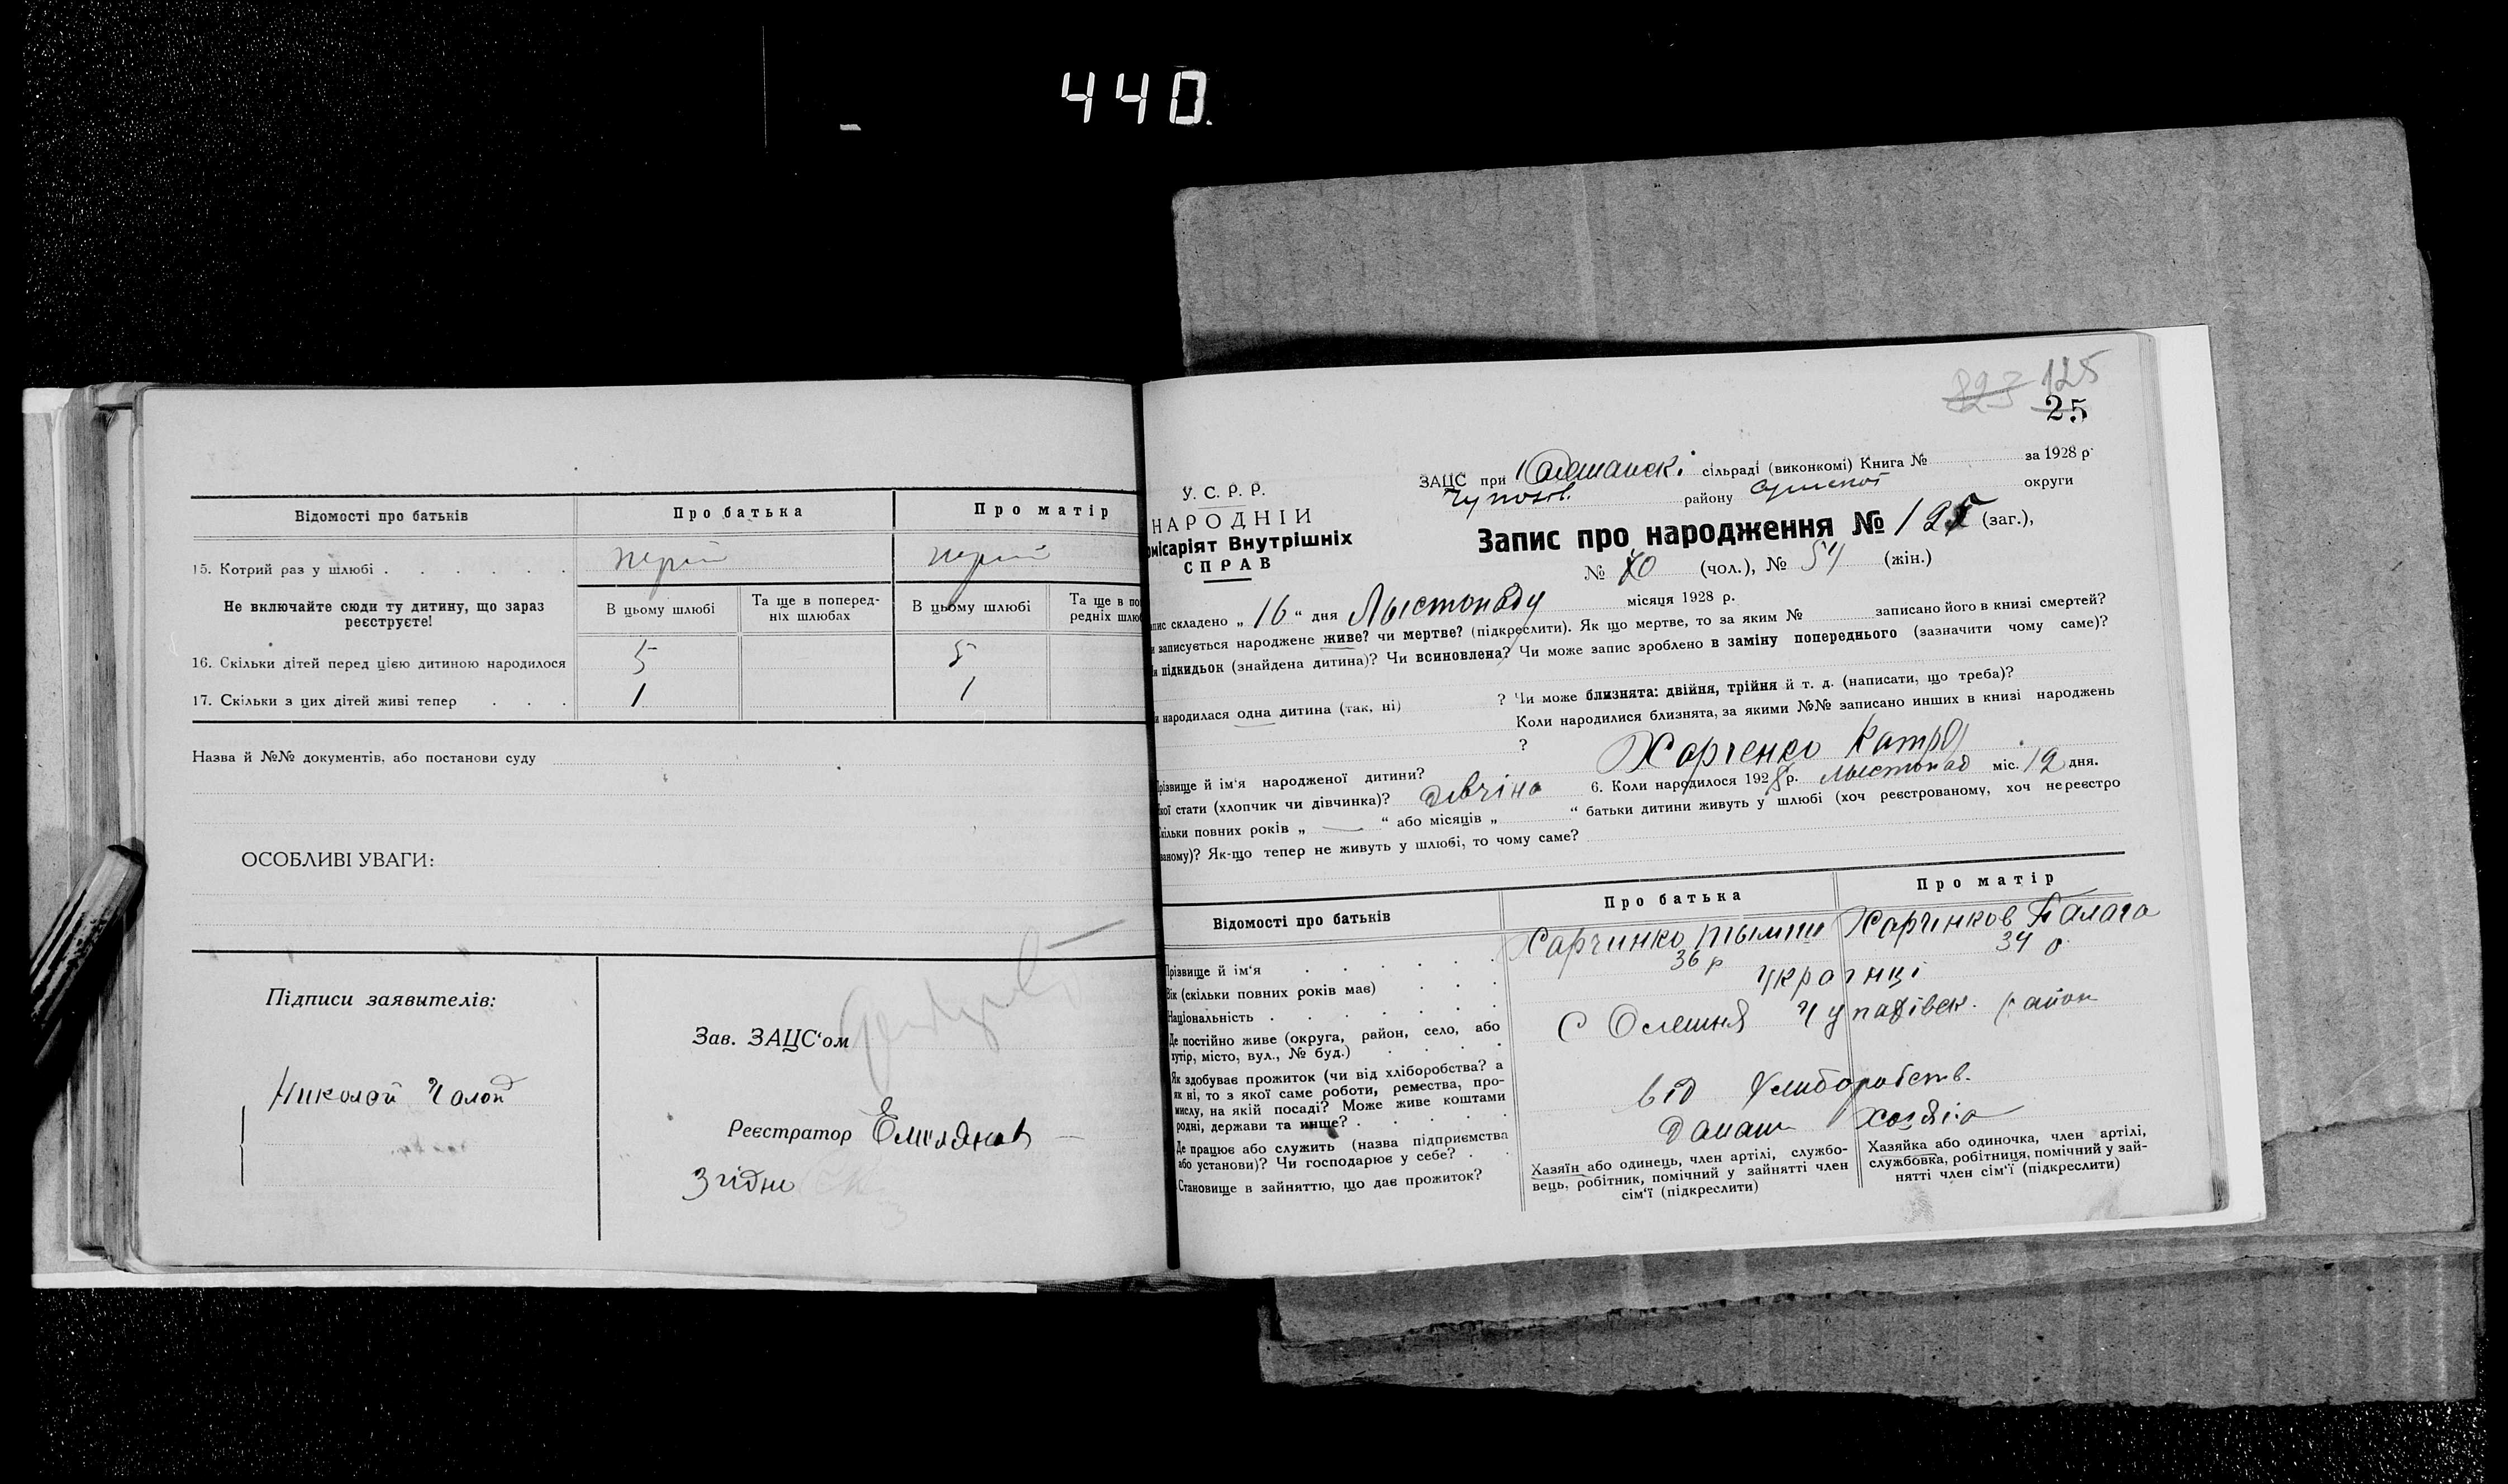 440.
Відомості про батьків
Про батька
Про матір
15. Котрий раз у шлюбі
перш
перш
Не включайте сюди ту дитину, що зараз
реєструєте!
В цьому шлюбі
Та ще в поперед-
ніх шлюбах
В цьому шлюбі
Та ще в по
редніх шлю
16. Скільки дітей перед цією дитиною народилося
5
5
17. Скільки з цих дітей живі тепер
1
1
Назва й №№ документів, або постанови суду
ОСОБЛИВІ УВАГИ:
Підписи заявителів:
Николай
Зав. ЗАЦС'ом
Реєстратор Емілянов
Згідно
823 125
25
У. С. Р. Р.
НАРОДНІЙ
місаріят Внутрішніх
СПРАВ
ЗАЦС при сільраді (виконкомі) Книга № за 1928 р.
району Сумської округи
Запис про народження № 125 (заг.),
№ (чол.), № 54 (жін.)
пис складено „ 16 " дня Лыстопаду місяця 1928 р.
записується народжене живе? чи мертве? (підкреслити). Як що мертве, то за яким № записано його в книзі смертей?
підкидьок (знайдена дитина)? Чи всиновлена? Чи може запис зроблено в заміну попереднього (зазначити чому саме)?
народилася одна дитина (так, ні) ? Чи може близнята: двійня, трійня й т. д. (написати, що треба)?
Коли народилися близнята, за якими №№ записано инших в книзі народжень
?
різвище й ім'я народженої дитини? Харченко Катр
кої стати (хлопчик чи дівчинка)? дівчіна 6. Коли народилося 1928 р. лыстопад міс. 12 дня.
кільки повних років „ — " або місяців „ " батьки дитини живуть у шлюбі (хоч реєстрованому, хоч нереєстро
ваному)? Як-що тепер не живуть у шлюбі, то чому саме?
Відомості про батьків
Про батька
Про матір
Прізвище й ім'я
Харчинко Тымиш
Харчинков Палага
Вік (скільки повних років має)
36 р
34 р
Національність
Українці
Де постійно живе (округа, район, село, або
хутір, місто, вул., № буд.)
С Олешня Чупахівськ. район
Як здобуває прожиток (чи від хліборобства? а
як ні, то з якої саме роботи, ремества, про-
мислу, на якій посаді? Може живе коштами
родні, держави та инше?
від Хлиборобств.
Де працює або служить (назва підприємства
або установи)? Чи господарює у себе?
Становище в зайняттю, що дає прожиток?
Хазяїн або одинець, член артілі, службо-
вець, робітник, помічний у зайнятті член
сім'ї (підкреслити)
Хазяйка або одиночка, член артілі,
службовка, робітниця, помічний у зай-
нятті член сім'ї (підкреслити)